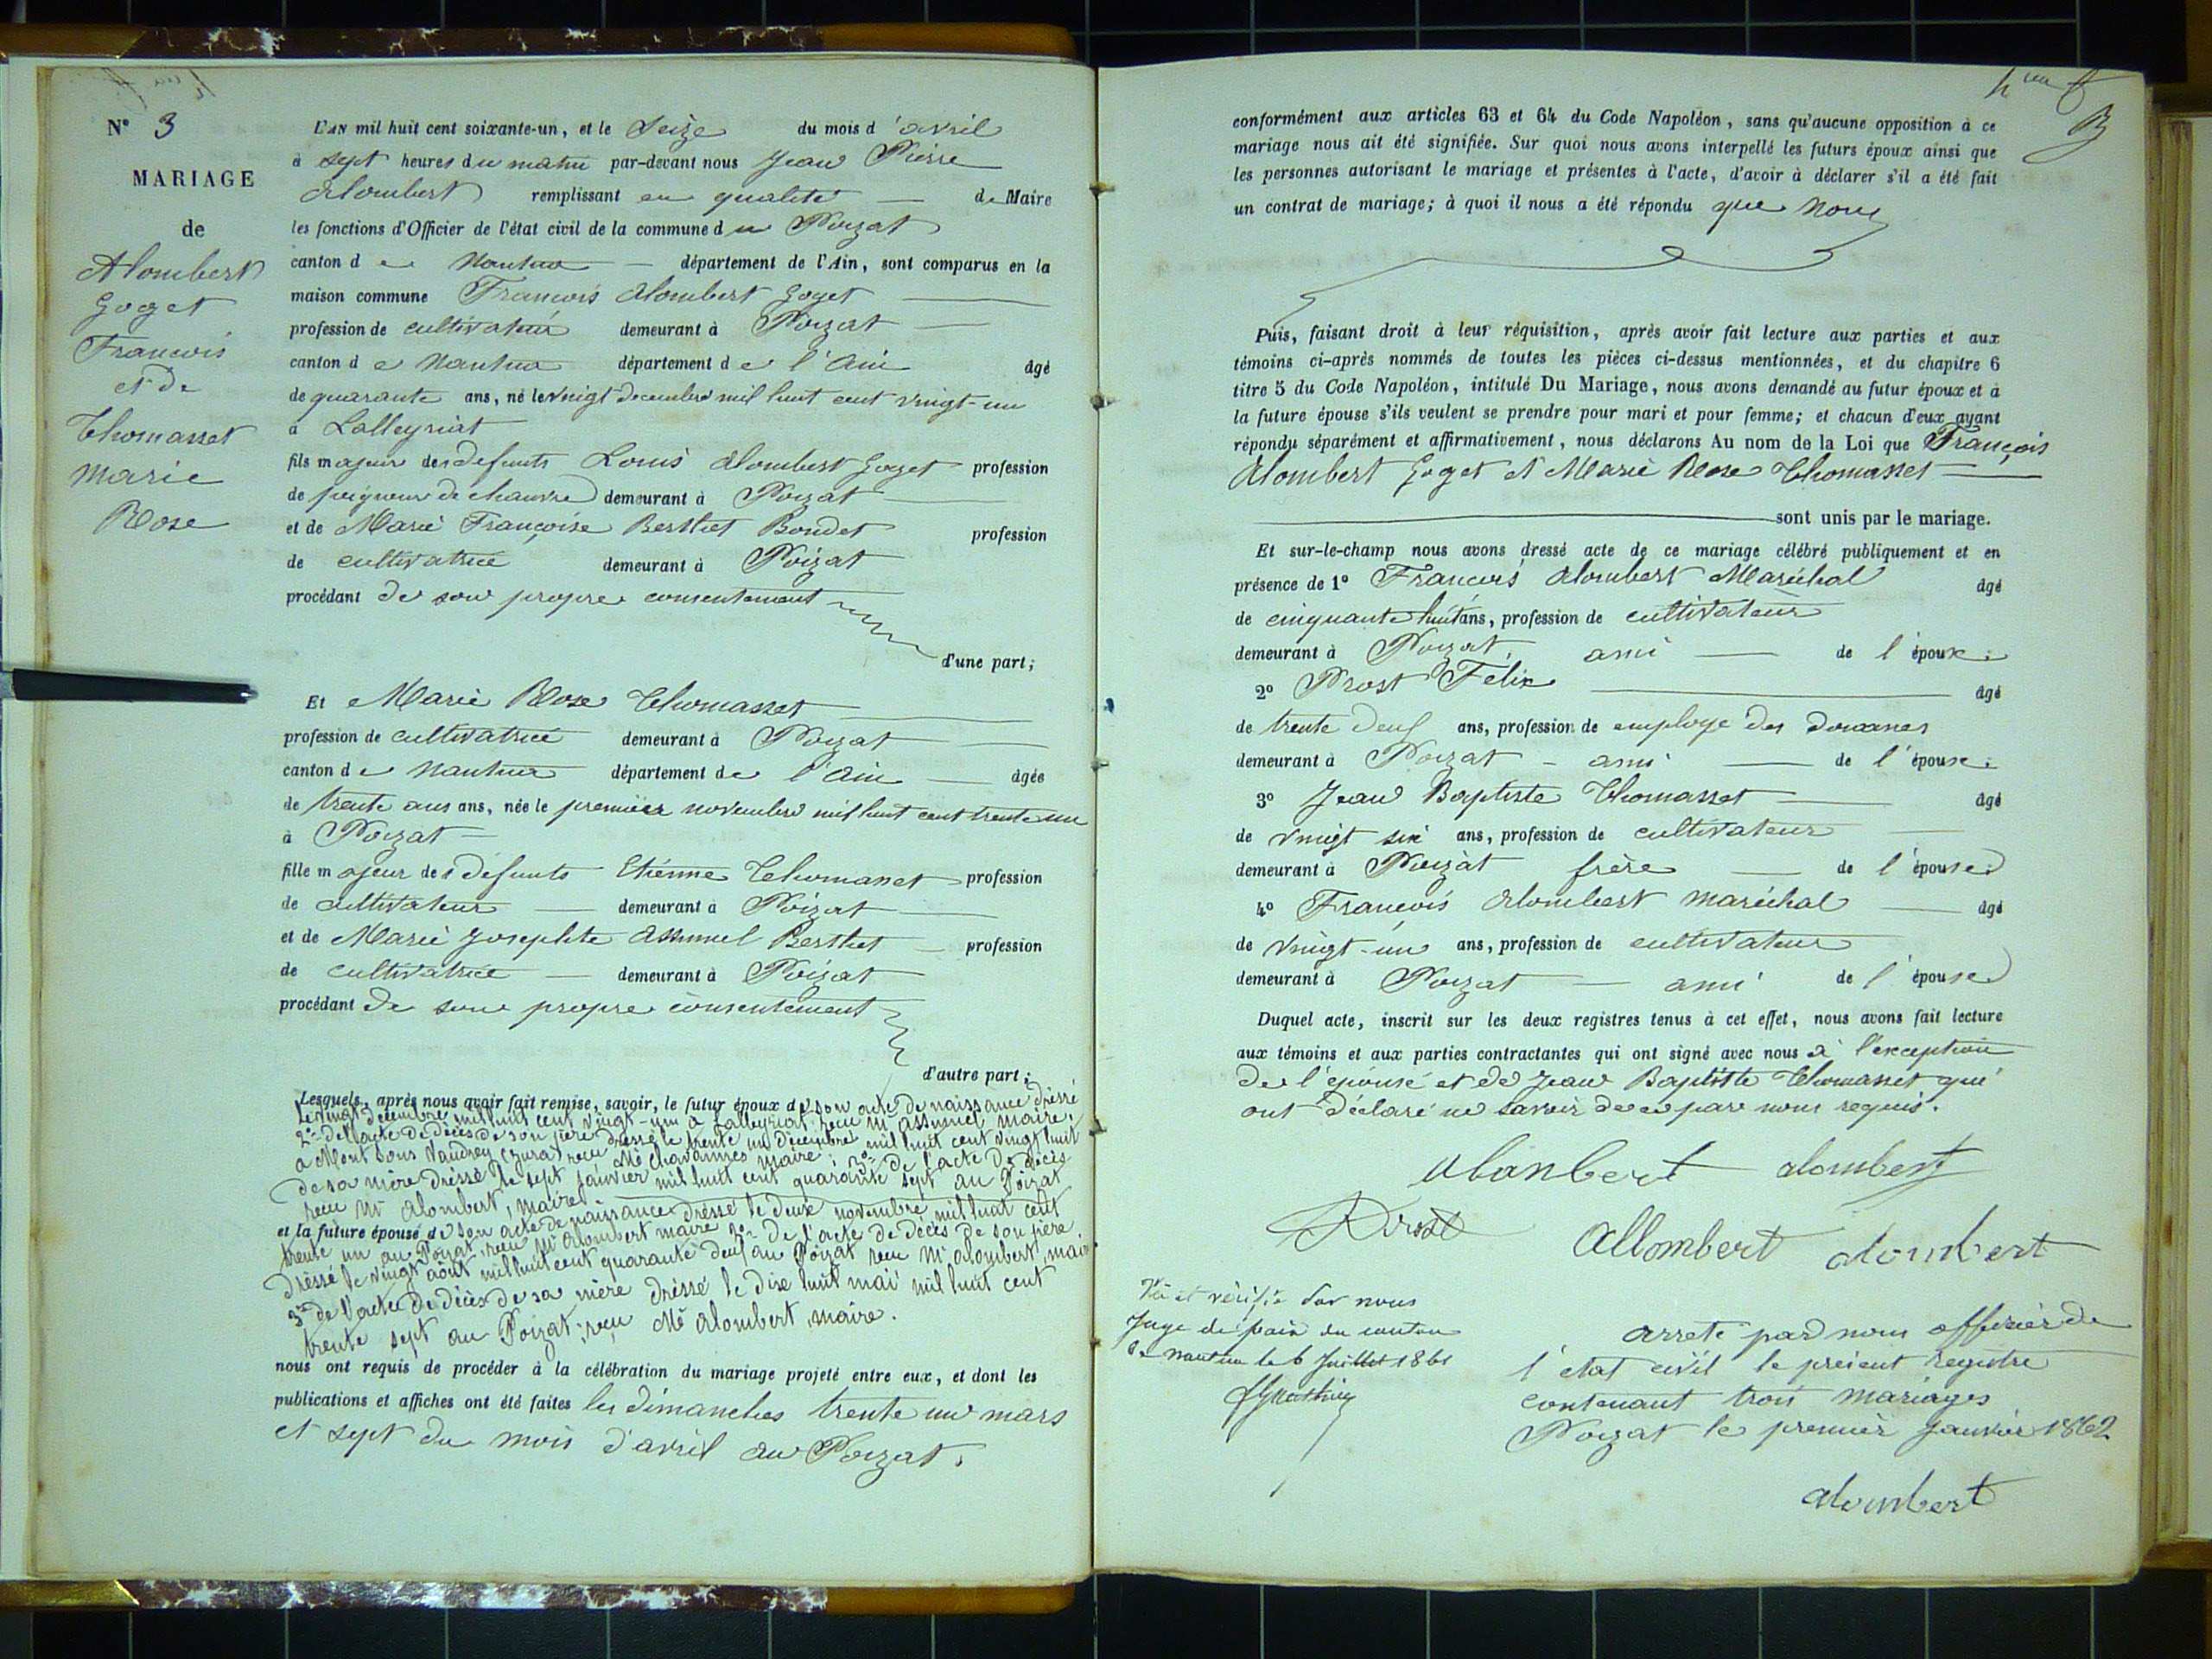 N° 3
MARIAGE
de
Alombert
Goget
François
et de
Thomasset
Marie
Rose
L'AN mil huit cent soixante-un, et le Seize du mois d'avril
à sept heures du matin par-devant nous Jean Pierre
Alombert remplissant en qualité de Maire
les fonctions d'Officier de l'état civil de la commune du Poizat
canton de Nantua département de l'Ain, sont comparus en la
maison commune François Alombert Goget
profession de cultivateur demeurant à Poizat
canton de Nantua département de l'Ain âgé
de quarante ans, né le vingt decembre mil huit cent vingt-un
à Lalleyriat
fils majeur des defunts Louis Alombert Goget profession
de peigneur de chanvre demeurant à Poizat
et de Marie Françoise Berthet Bondet profession
de cultivatrice demeurant à Poizat
procédant de son propre consentement
d'une part;
Et Marie Rose Thomasset
profession de cultivatrice demeurant à Poizat
canton de Nantua département de l'Ain âgée
de trente ans ans, née le premier novembre mil huit cent trente un
à Poizat
fille majeur des défunts Etienne Thomasset profession
de cultivateur demeurant à Poizat
et de Marie Josephte Assumel Berthet profession
de cultivatrice demeurant à Poizat
procédant de son propre consentement
d'autre part;
Lesquels, après nous avoir fait remise, savoir, le futur époux de son acte de naissance dressé
le vingt decembre mil huit cent vingt-un à Lalleyriat reçu Mr Assumel maire;
2° de l'acte de décès de son père dressé le trente un decembre mil huit cent vingt huit
à Mont sous Vaudrey (Jura) reçu Mr Chavannes maire; 3° de l'acte de décès
de sa mère dressé le sept janvier mil huit cent quarante sept au Poizat
reçu Mr Alombert, maire.
et la future épouse de son acte de naissance dressé le deux novembre mil huit cent
trente un au Poizat, reçu Mr Alombert maire 2° de l'acte de décès de son père
dressé le vingt août mil huit cent quarante deux au Poizat reçu Mr Alombert, maire
3° de l'acte de décès de sa mère dressé le dix huit mai mil huit cent
trente sept au Poizat; reçu Mr Alombert, maire.
nous ont requis de procéder à la célébration du mariage projeté entre eux, et dont les
publications et affiches ont été faites les dimanches trente un mars
et sept du mois d'avril au Poizat.
conformément aux articles 63 et 64 du Code Napoléon, sans qu'aucune opposition à ce
mariage nous ait été signifiée. Sur quoi nous avons interpellé les futurs époux ainsi que
les personnes autorisant le mariage et présentes à l'acte, d'avoir à déclarer s'il a été fait
un contrat de mariage; à quoi il nous a été répondu que non
Puis, faisant droit à leur réquisition, après avoir fait lecture aux parties et aux
témoins ci-après nommés de toutes les pièces ci-dessus mentionnées, et du chapitre 6
titre 5 du Code Napoléon, intitulé Du Mariage, nous avons demandé au futur époux et à
la future épouse s'ils veulent se prendre pour mari et pour femme; et chacun d'eux ayant
répondu séparément et affirmativement, nous déclarons Au nom de la Loi que François
Alombert Goget et Marie Rose Thomasset
sont unis par le mariage.
Et sur-le-champ nous avons dressé acte de ce mariage célébré publiquement et en
présence de 1° François Alombert Maréchal âgé
de cinquante huit ans, profession de cultivateur
demeurant à Poizat, ami de l'épouse
2° Prost Felix âgé
de trente deux ans, profession de employé des douanes
demeurant à Poizat - ami de l'épouse
3° Jean Baptiste Thomasset âgé
de vingt six ans, profession de cultivateur
demeurant à Poizat frère de l'épouse
4° François Alombert maréchal âgé
de vingt-un ans, profession de cultivateur
demeurant à Poizat ami de l'épouse
Duquel acte, inscrit sur les deux registres tenus à cet effet, nous avons fait lecture
aux témoins et aux parties contractantes qui ont signé avec nous à l'exception
de l'épouse et de Jean Baptiste Thomasset qui
ont déclaré ne savoir de ce par nous requis.
alonbert alombert
Prost Allombert alombert
Vu et vérifié par nous
Juge de paix du canton
de Nantua le 6 Juillet 1861
arrêté par nous officier de
l'état civil le présent registre
contenant trois mariages
Poizat le premier janvier 1862
alombert